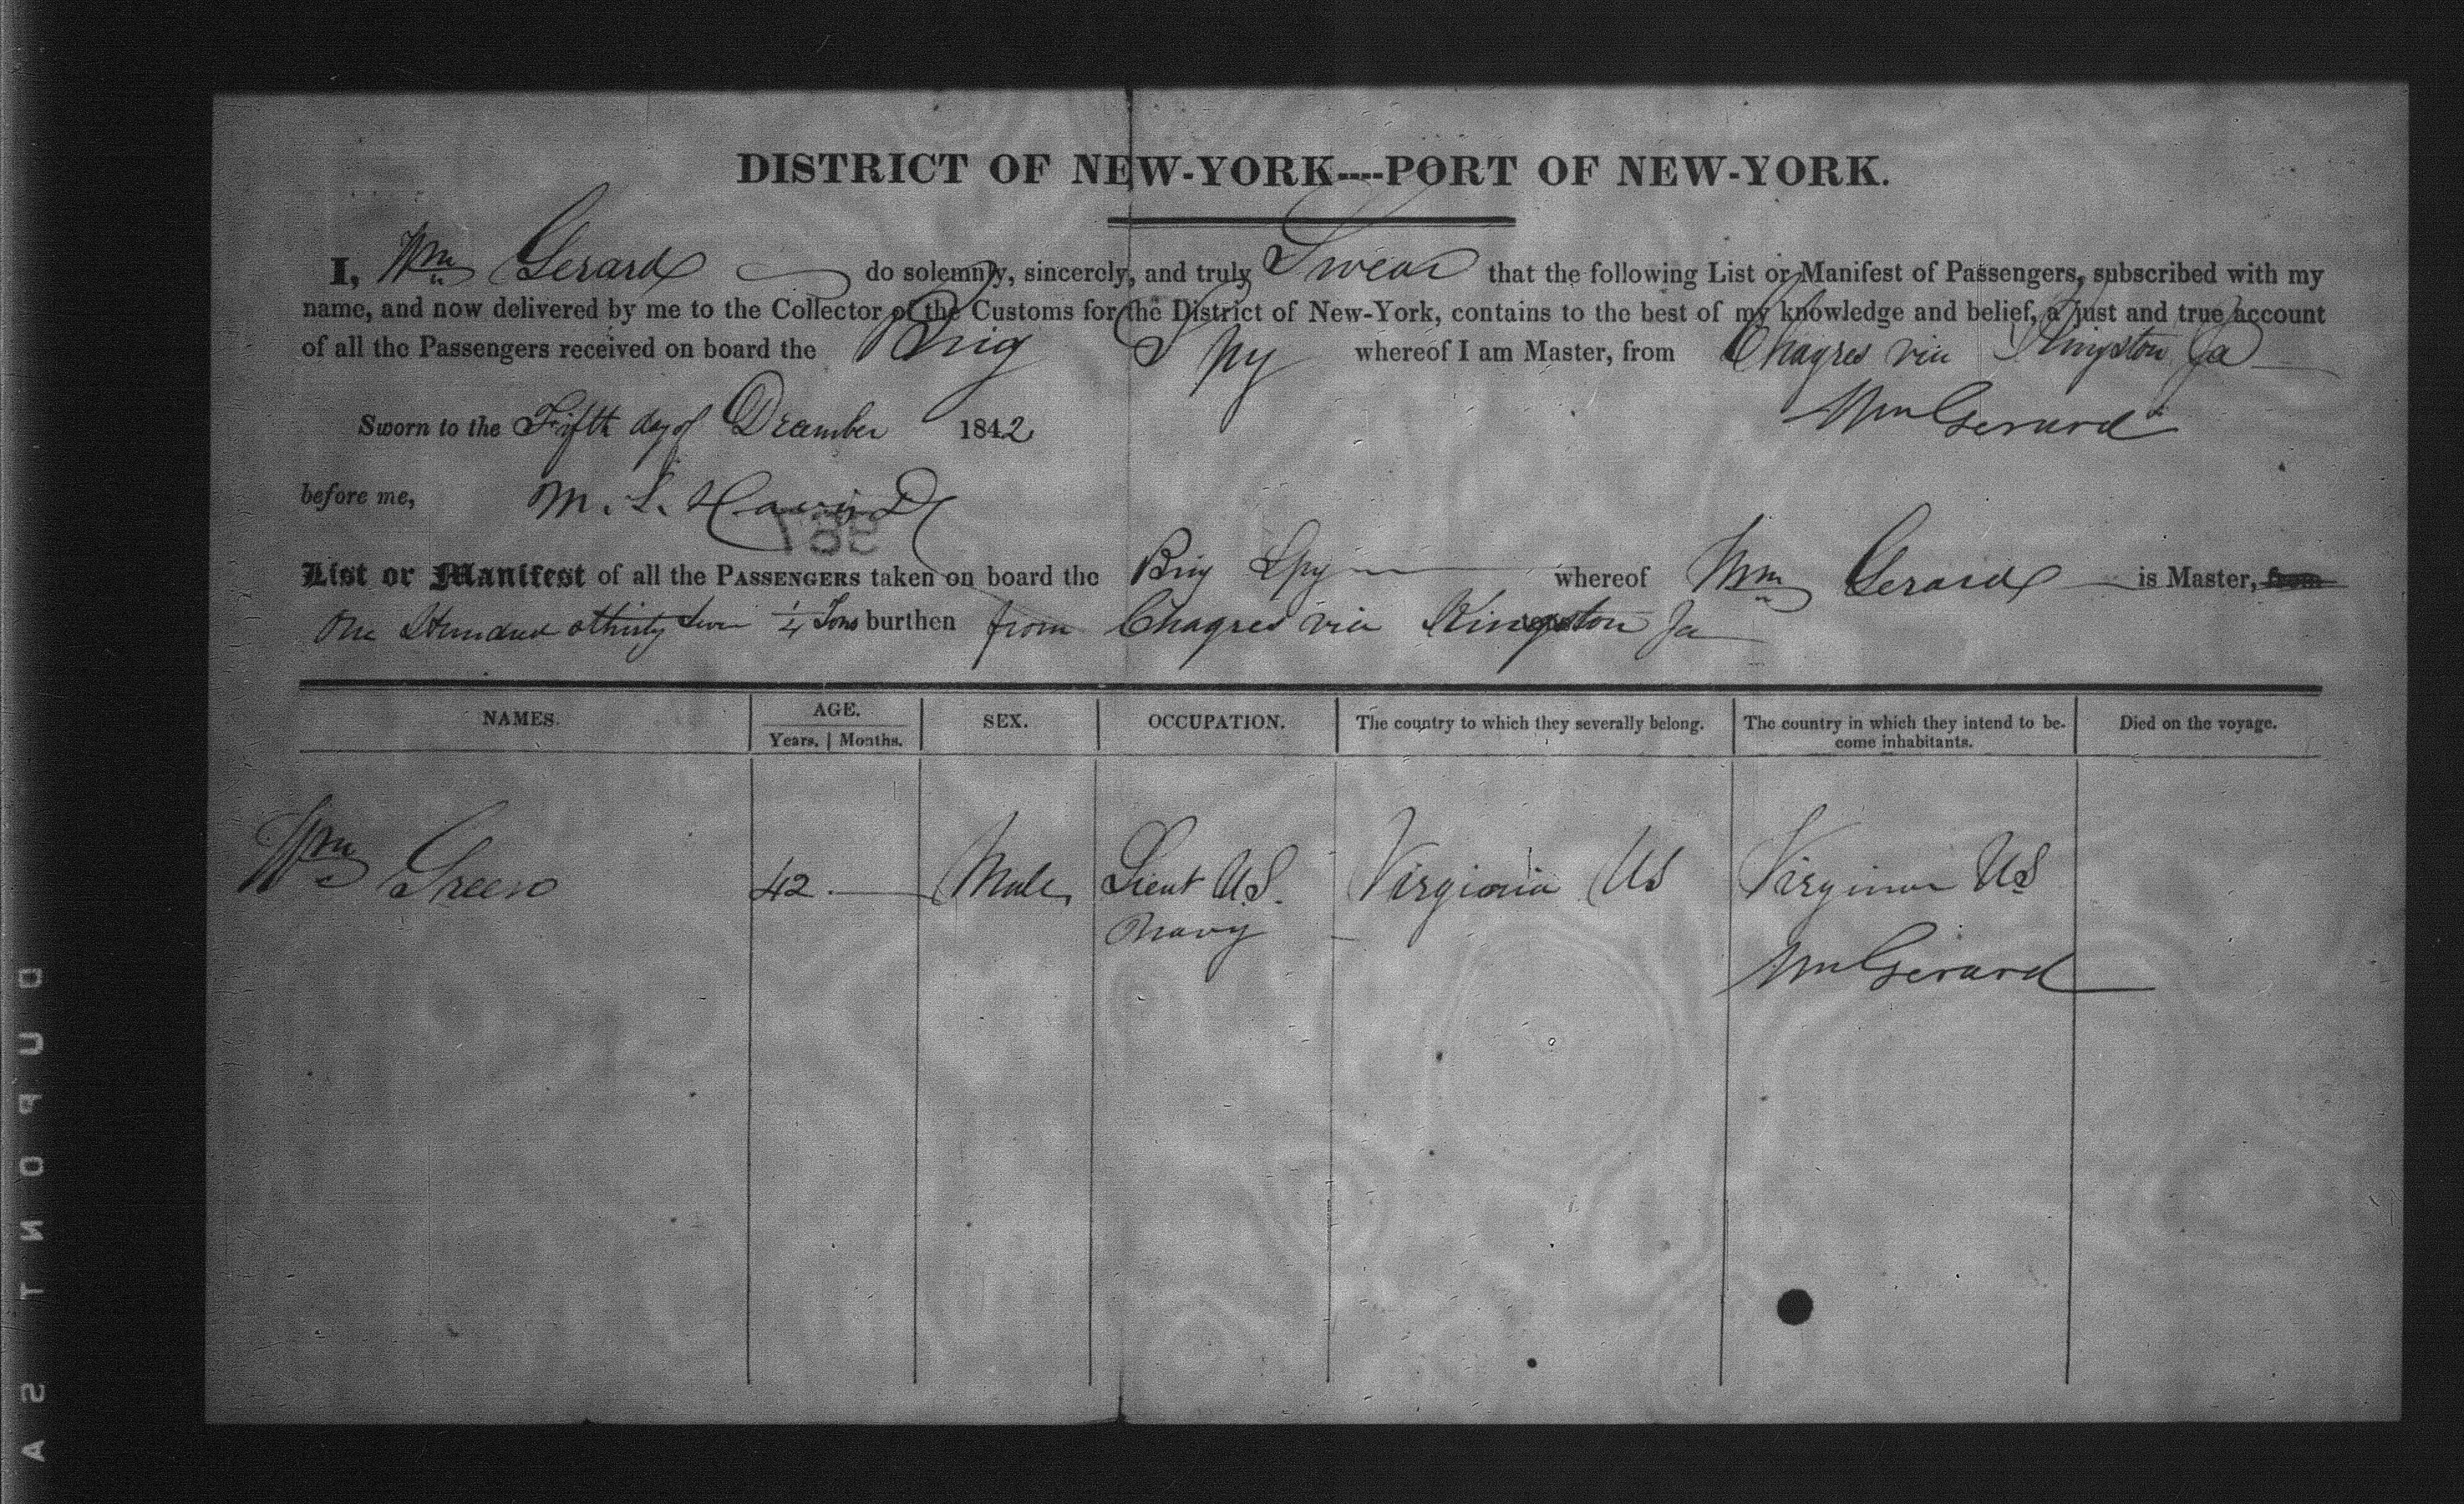 DISTRICT OF NEW-YORK----PORT OF NEW-YORK.
I, Wm Gerard do solemnly, sincerely, and truly Swear that the following List or Manifest of Passengers, subscribed with my
name, and now delivered by me to the Collector of the Customs for the District of New-York, contains to the best of my knowledge and belief, a just and true account
of all the Passengers received on board the Brig Spy whereof I am Master, from Chagres via Kingston Ja
Wm Gerard
Sworn to the Fifth day of December 1842
before me, M. L.
List or Manifest of all the PASSENGERS taken on board the Brig Spy whereof Wm Gerard is Master, from
One Hundred & thirty 1/4 Tons burthen from Chagres via Kingston Ja
NAMES. AGE. SEX. OCCUPATION. The country to which they severally belong. The country in which they intend to be- Died on the voyage.
Years. | Months. come inhabitants.
Wm Green 42 Male Lieut U.S. Virginia US Virginia US
Navy
Wm Gerard
DUPONT SA